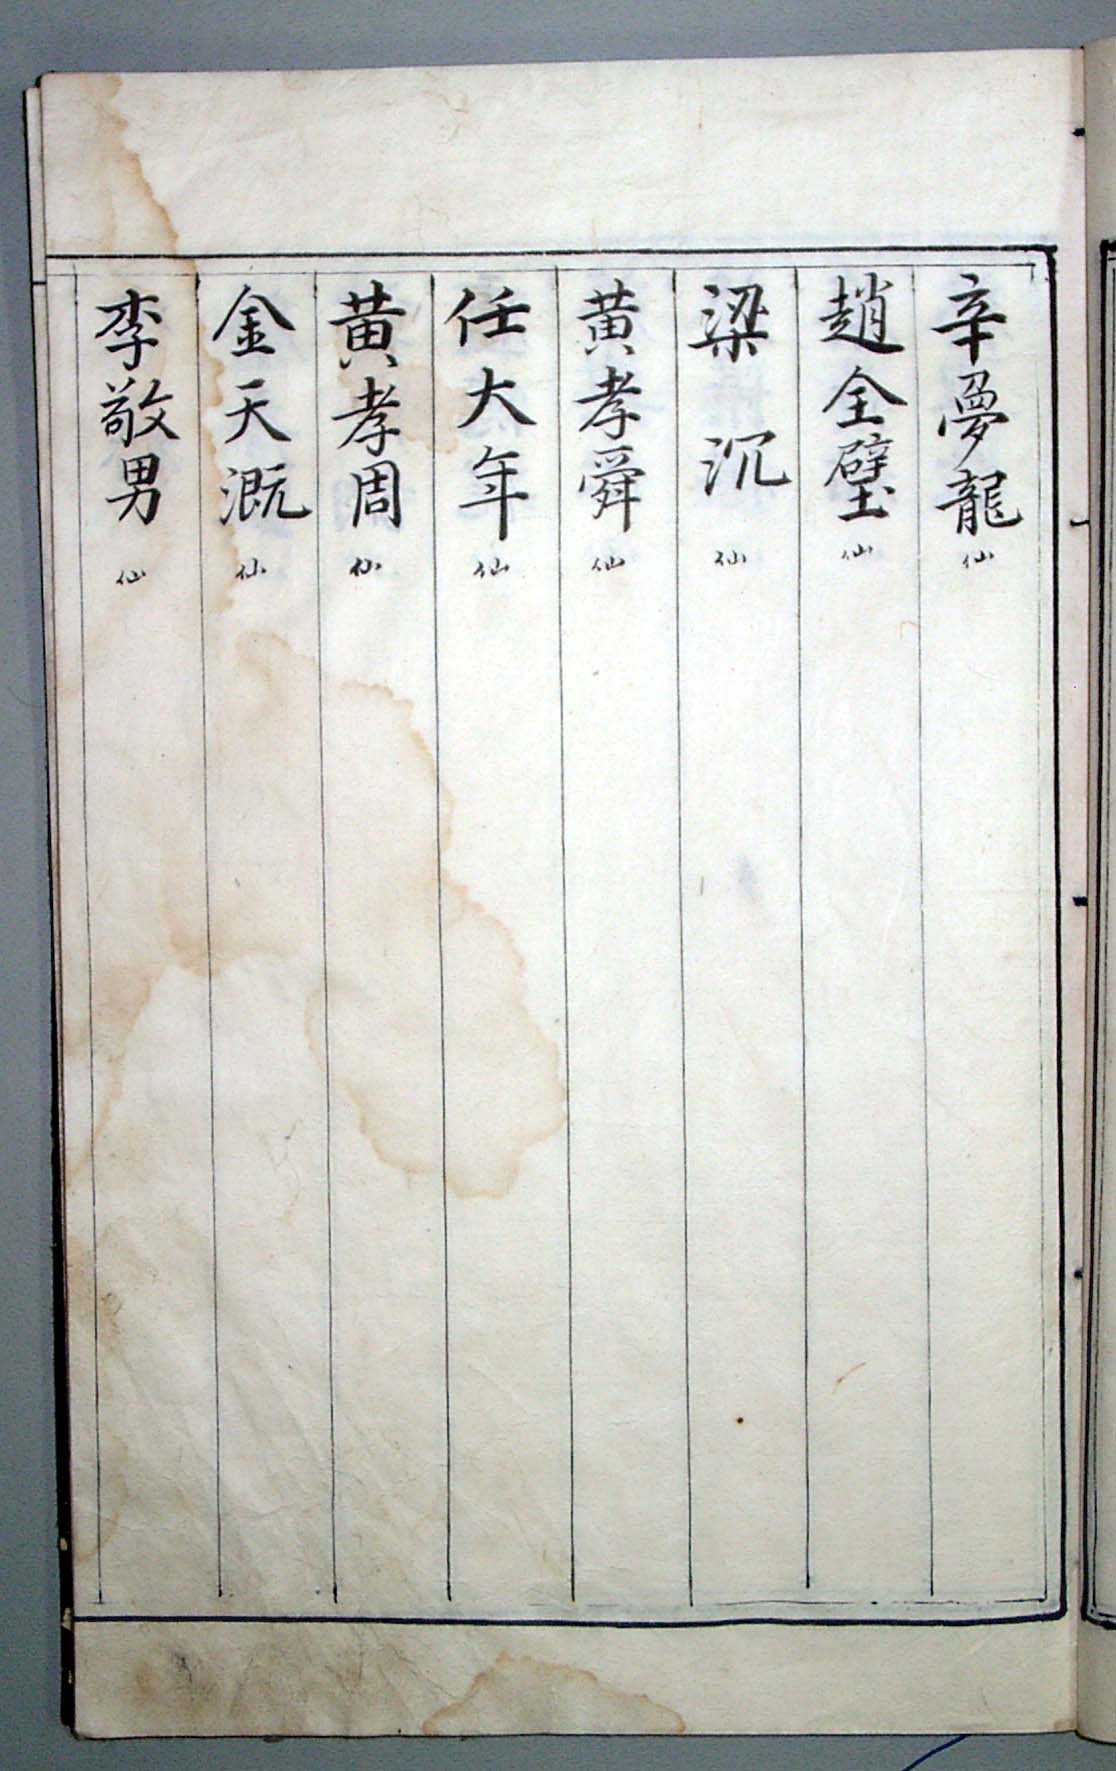 辛夢龍仙
趙全璧仙
梁沉仙
黃孝舜仙
任大年仙
黃孝周仙
金天漑仙
李敬男仙